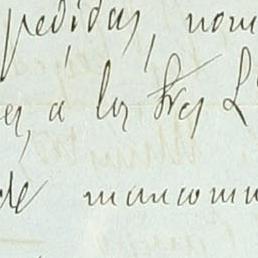 pedidas, nom
es, a los Sres L
de mancomu